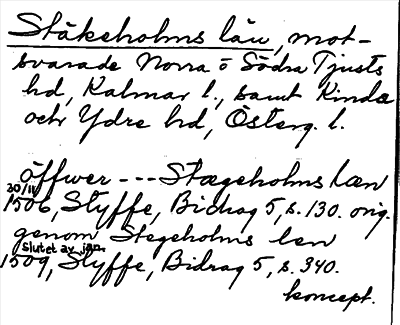 Stäkeholms län, mot-
svarade Norra o Södra Tjusts
hd, Kalmar l., samt Kinds
och Ydre hd, Österg. l.
öffwer --- Stægeholms læn
20/11
1506, Styffe, Bidrag 5, s. 130. orig.
genom Stegeholms len
Slutet av jan.
1509, Styffe, Bidrag 5, s. 340.
koncept.